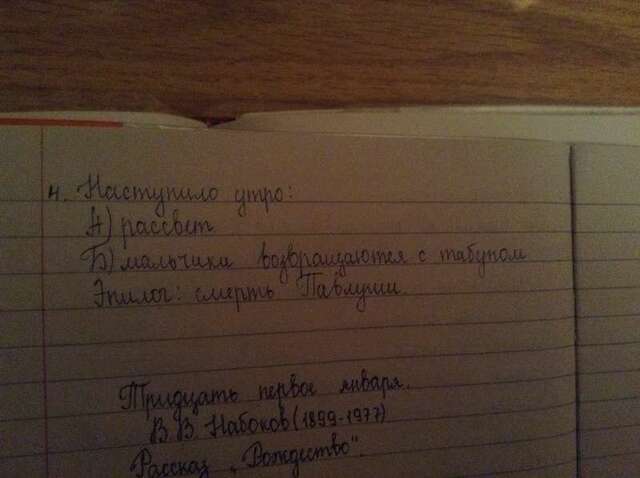 4. Наступило утро:
А) рассвет
Б) мальчики возвращаются с табуном
Эпилог: смерть Павлуши.
Тридцать первое января.
В.В. Набоков (1899-1977)
Рассказ „Рождество".